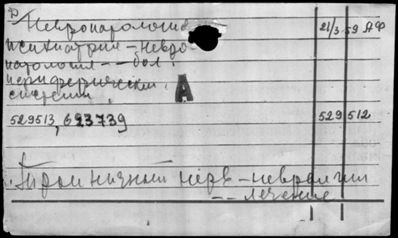 Невропатология
психиатрия - невро
патология - - - бол.
периферическ.
системы
A
21/3 59 АФ
529513, 693739
529 512
Тройничный нерв - невралгии
- - лечение